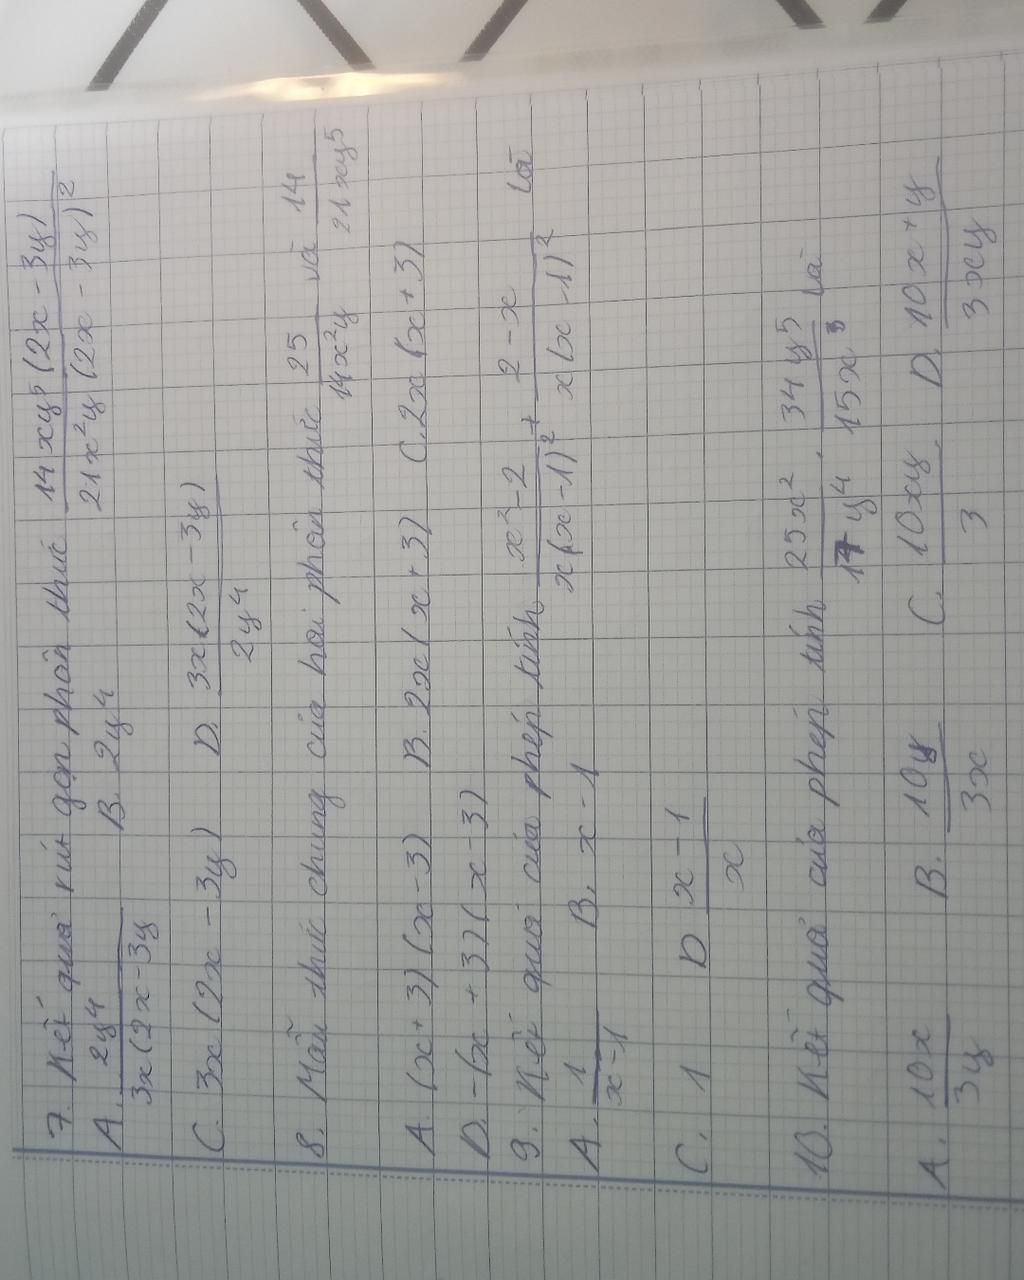 7. Kết quả rút gọn phân thức 14xy⁵(2x - 3y) / 21x²y(2x - 3y)²
A. 2y⁴ / 3x(2x-3y B. 2y⁴
C. 3x(2x - 3y) D. 3x(2x - 3y) / 2y⁴
8. Mẫu thức chung của hai phân thức 25 / 14x²y và 14 / 21xy⁵
A. (x+3)(x-3) B. 2x(x+3) C. 2x(x+3)
D. -(x+3)(x-3)
9. Kết quả của phép tính x²-2 / x(x-1)² + 2-x / x(x-1)² là
A. 1 / x-1 B. x-1
C. 1 D x-1 / x
10. Kết quả của phép tính 25x² / 17y⁴ . 34y⁵ / 15x³ là
A. 10x / 3y B. 10y / 3x C. 10xy / 3 D. 10x+y / 3xy